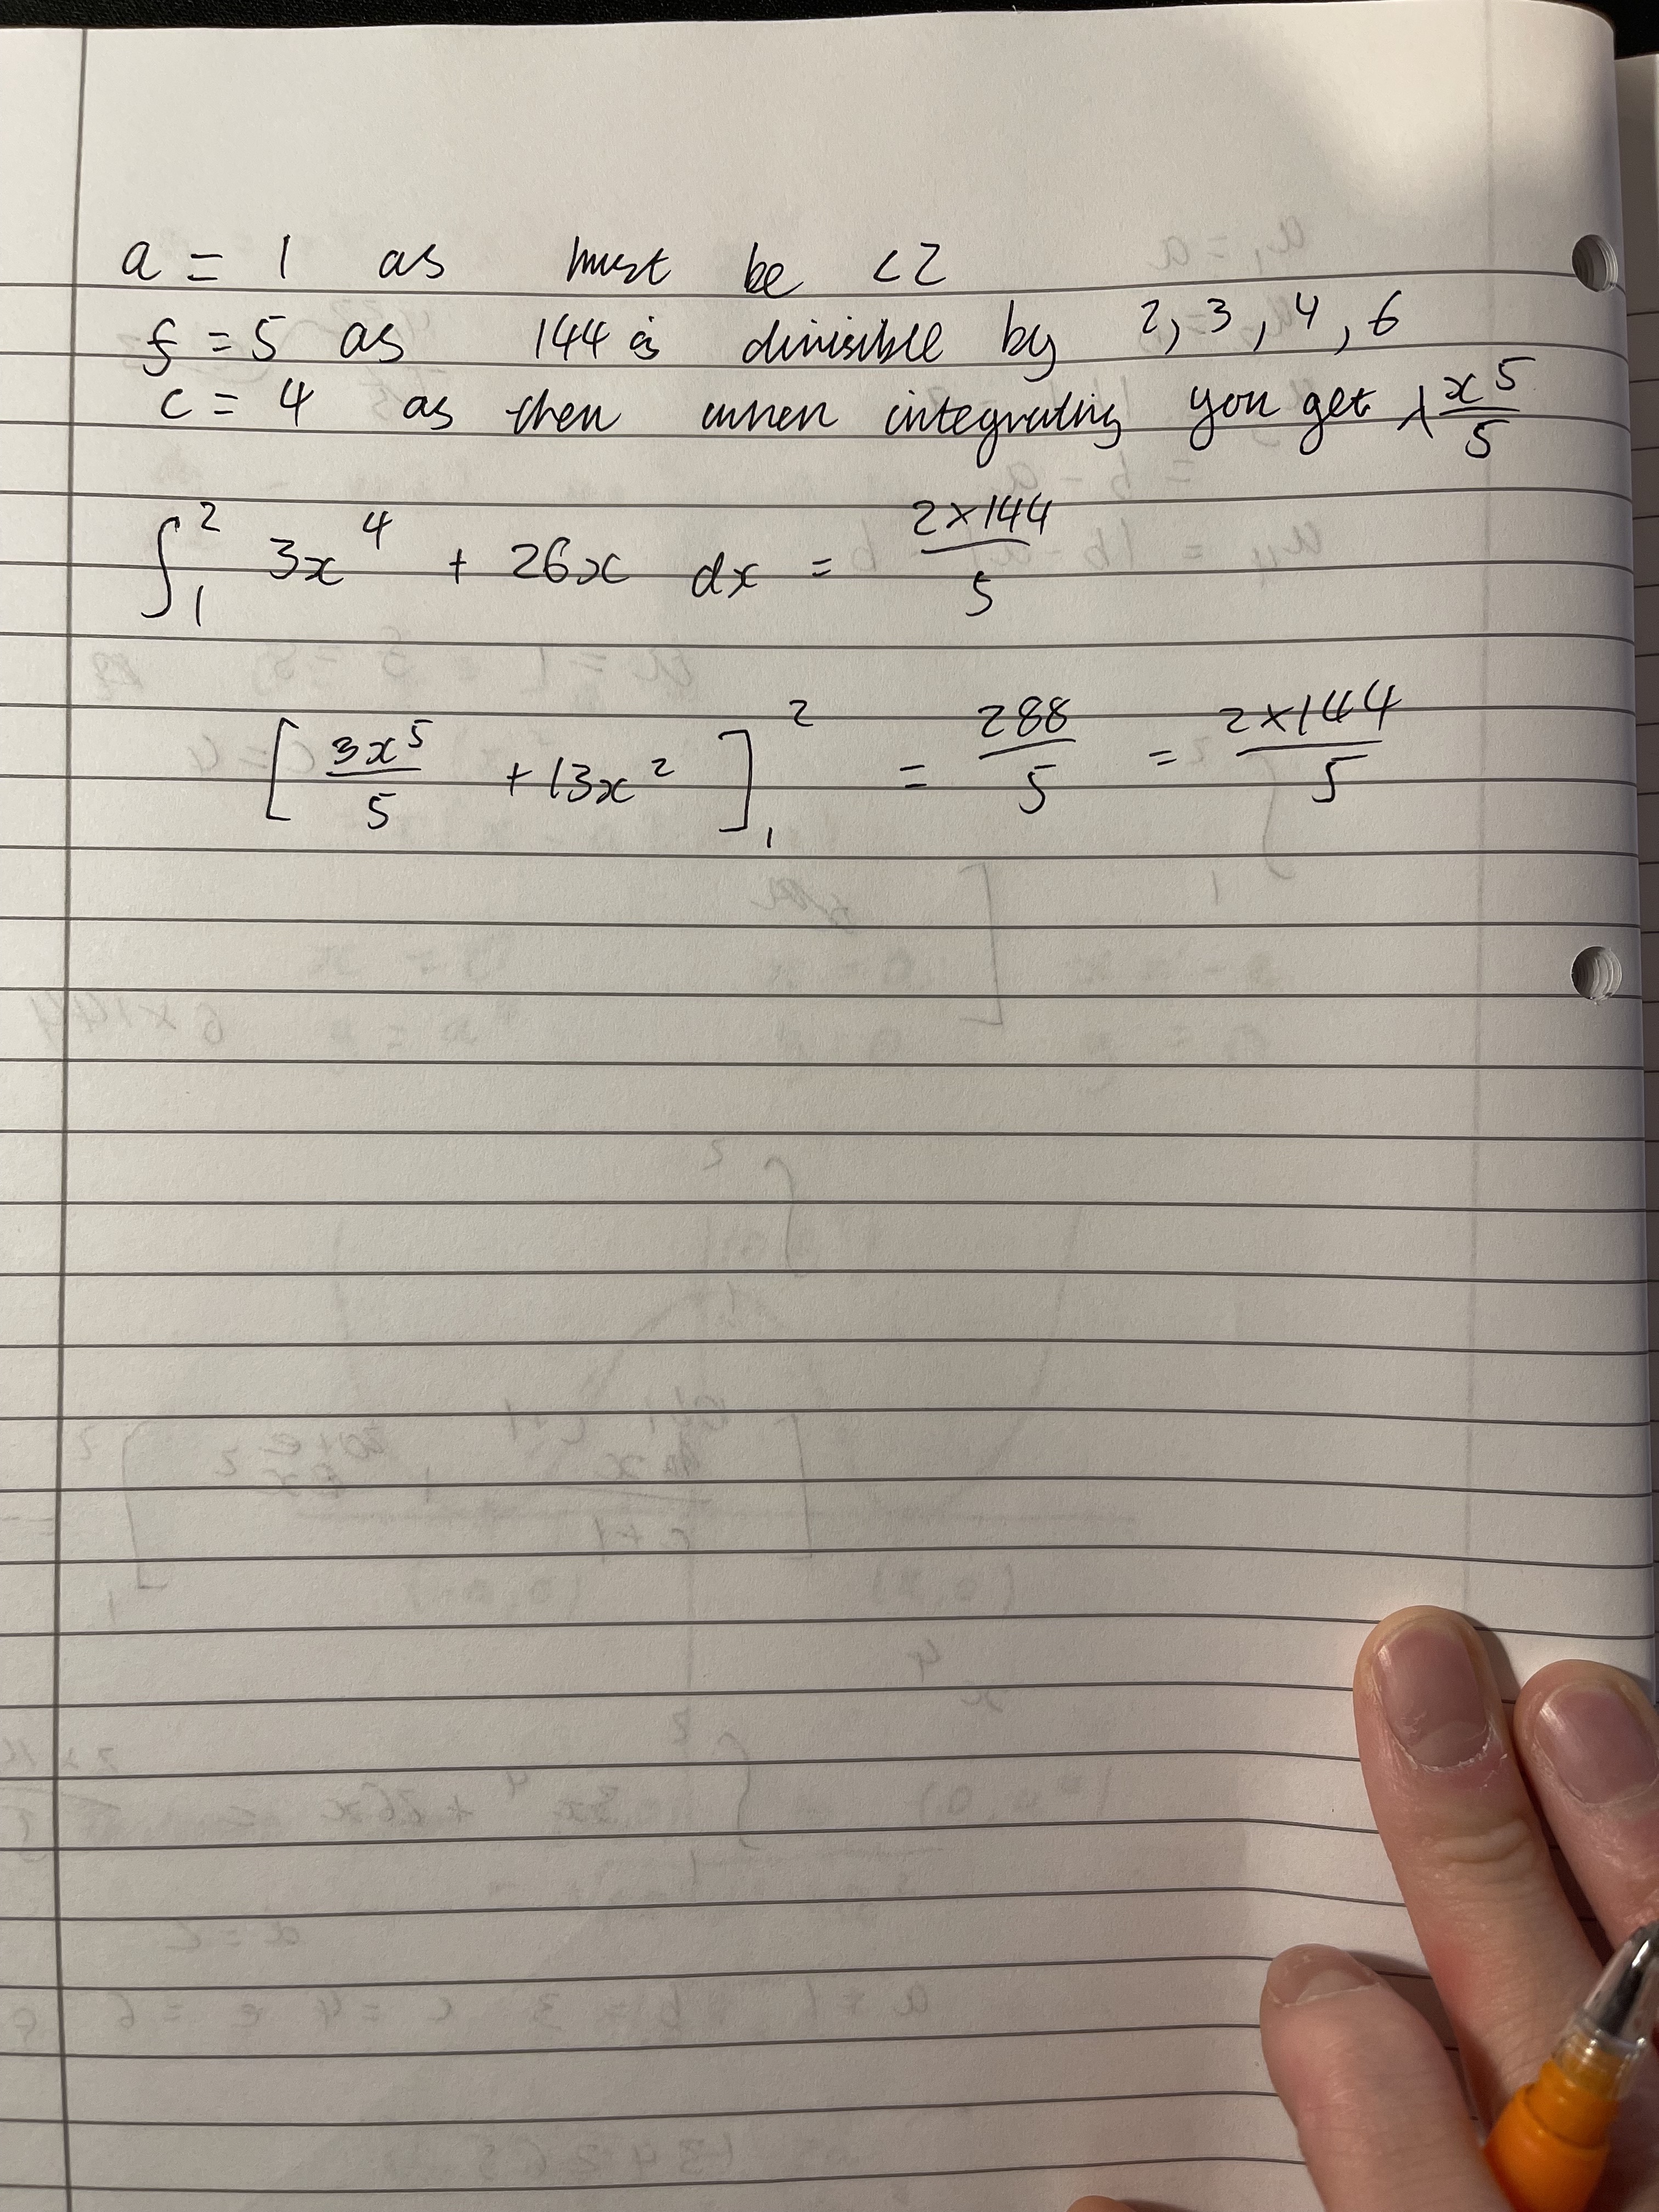 a = 1 as must be <2
f = 5 as 144 is divisible by 2, 3, 4, 6
c = 4 as then when integrating you get λx⁵/5
∫₁² 3x⁴ + 26x dx = 2×144/5
[3x⁵/5 + 13x²]₁² = 288/5 = 2×144/5